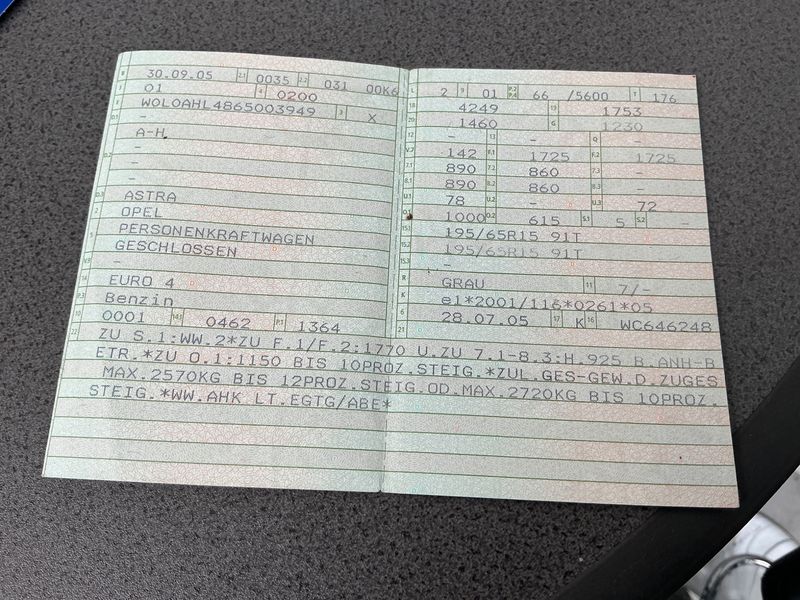 B 30.09.05 2.1 0035 2.2 031 00K6
J 01 4 0200
E W0L0AHL4865003949 3 X
D.1 -
A-H
D.2 -
-
-
D.3 ASTRA
2 OPEL
5 PERSONENKRAFTWAGEN
GESCHLOSSEN
V.9 -
14 EURO 4
P.3 Benzin
10 0001 14.1 0462 P.1 1364
L 2 9 01 P.2 P.4 66 /5600 T 176
18 4249 19 1753
20 1460 G 1230
12 - 13 - Q -
V.7 142 F.1 1725 F.2 1725
7.1 890 7.2 860 7.3 -
8.1 890 8.2 860 8.3 -
U.1 78 U.2 - U.3 72
O.1 1000 O.2 615 S.1 5 S.2 -
15.1 195/65R15 91T
15.2 195/65R15 91T
15.3 -
R GRAU 11 7/-
K e1*2001/116*0261*05
6 28.07.05 17 K 16 WC646248
21
22 ZU S.1:WW.2*ZU F.1/F.2:1770 U.ZU 7.1-8.3:H.925 B.ANH-B
ETR.*ZU O.1:1150 BIS 10PROZ.STEIG.*ZUL.GES-GEW.D.ZUGES
MAX.2570KG BIS 12PROZ.STEIG.OD.MAX.2720KG BIS 10PROZ.
STEIG.*WW.AHK LT.EGTG/ABE*